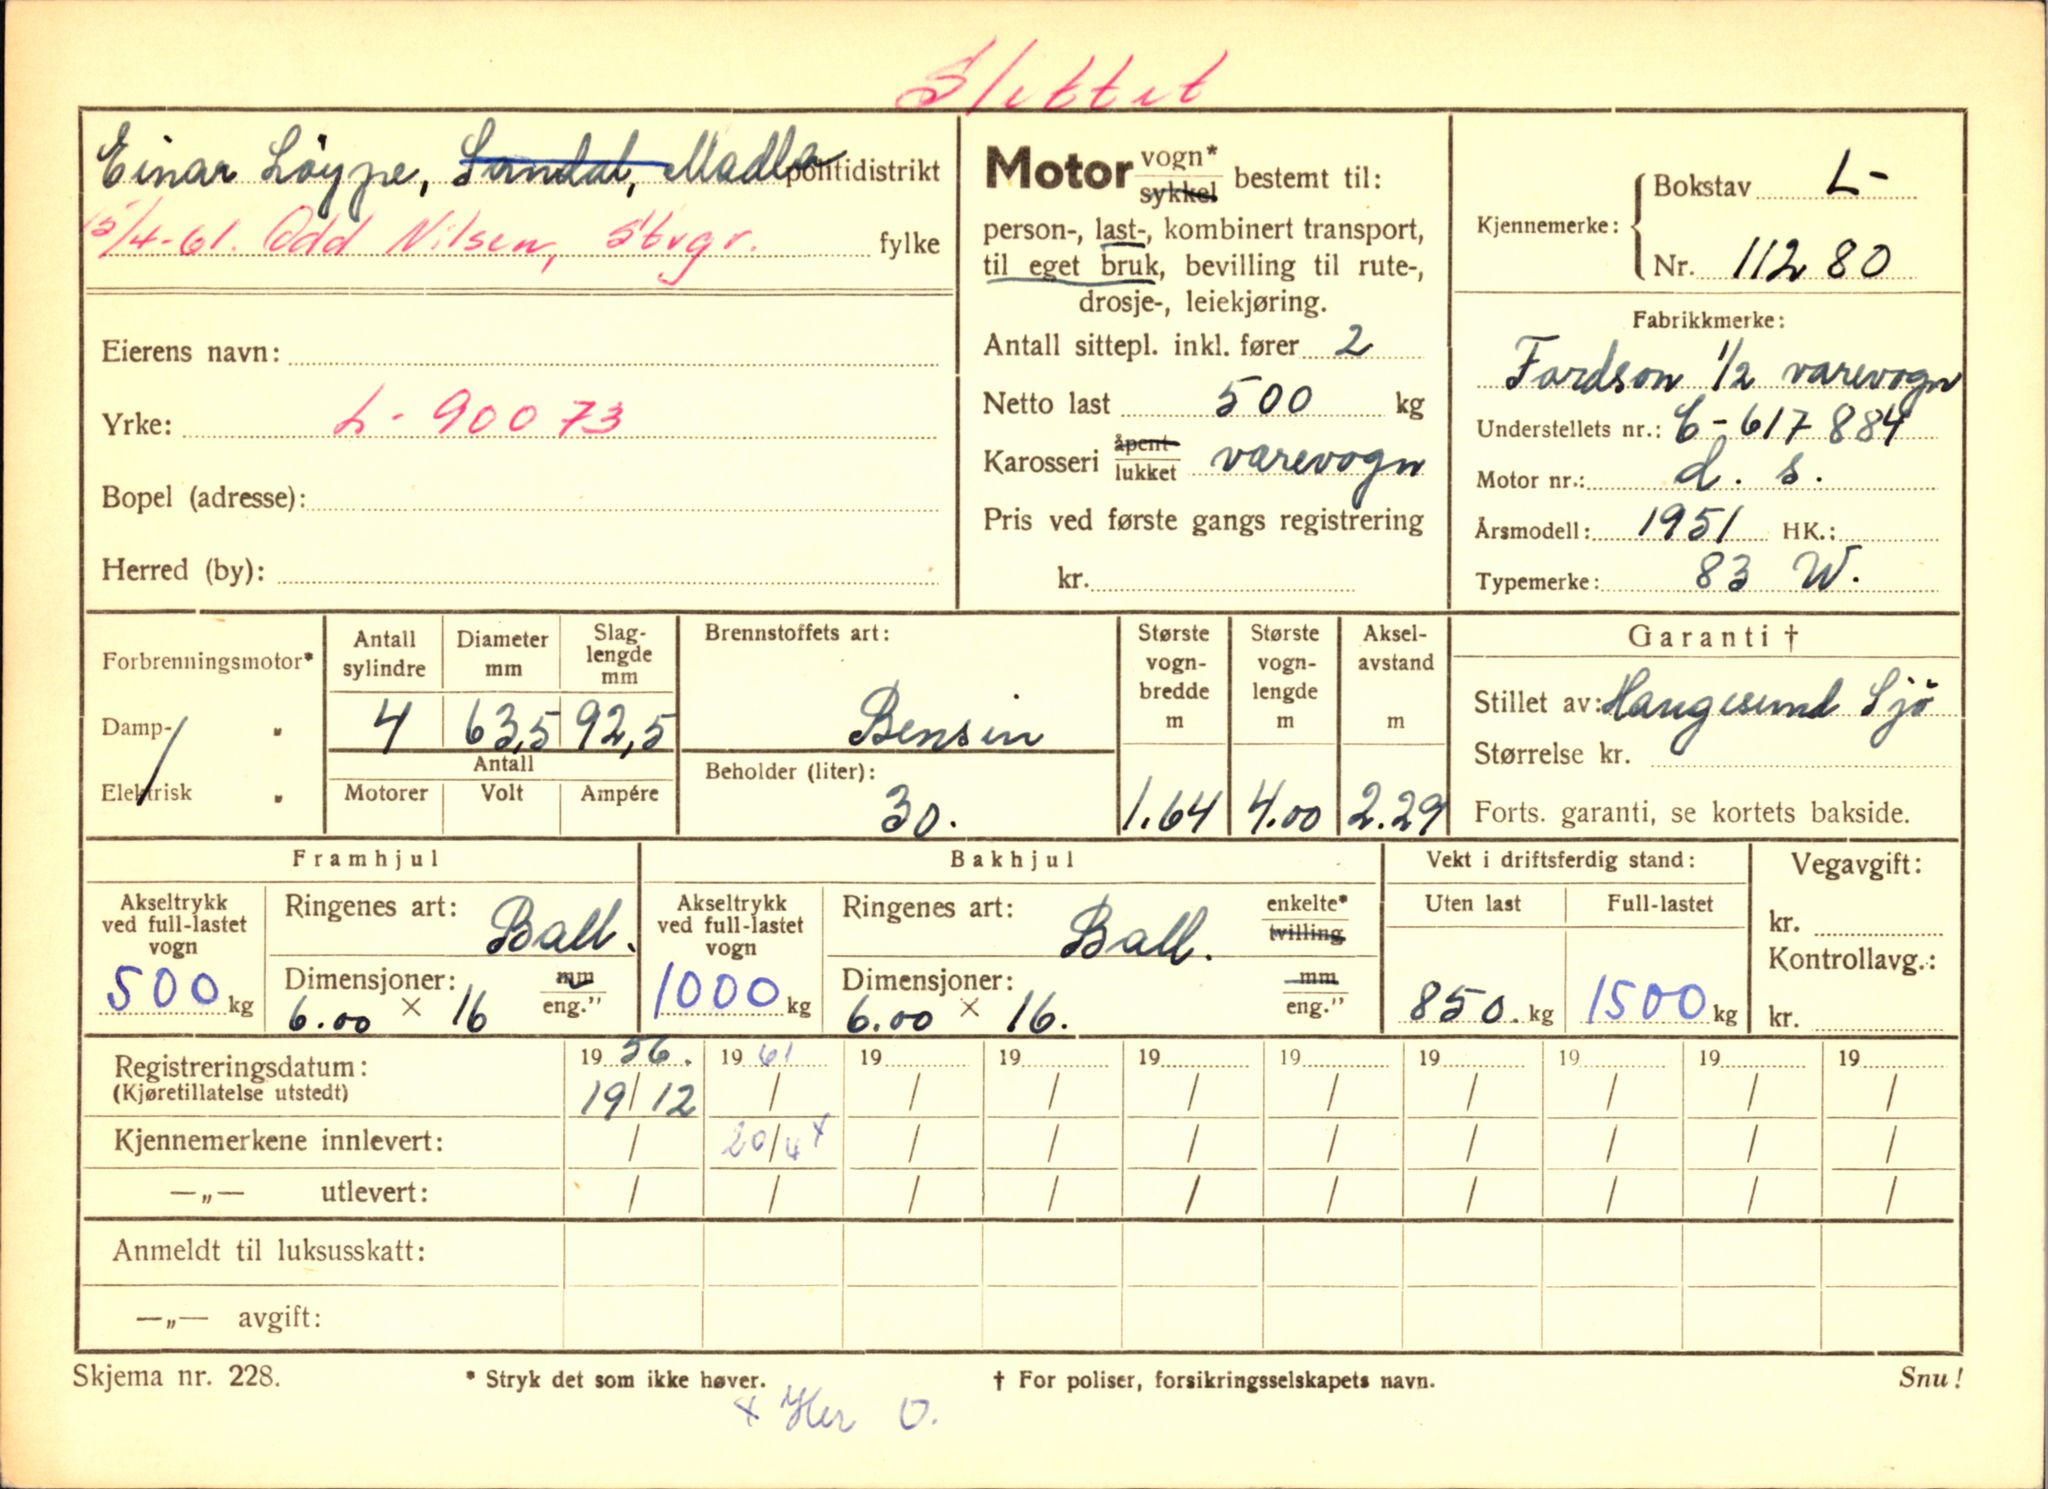 Slettet
Einar Löype, Sandal, Madla politidistrikt
15/4-61. Odd Nilsen, Stvgr. fylke
Eierens navn:
Yrke: L- 90073
Bopel (adresse):
Herred (by):
Motor vogn* sykkel bestemt til:
person-, last-, kombinert transport,
til eget bruk, bevilling til rute-,
drosje-, leiekjøring.
Antall sittepl. inkl. fører 2
Netto last 500 kg
Karosseri åpent lukket varevogn
Pris ved første gangs registrering
kr.
Kjennemerke: Bokstav L-
Nr. 11280
Fabrikkmerke:
Fordson 1/2 varevogn
Understellets nr.: C-617884
Motor nr.: d. s.
Årsmodell: 1951 HK.:
Typemerke: 83 W.
Forbrenningsmotor*
Damp- "
Elektrisk "
Antall sylindre Diameter mm Slag-lengde mm
4 63,5 92,5
Antall
Motorer Volt Ampére
Brennstoffets art:
Bensin
Beholder (liter):
30.
Største vogn-bredde m Største vogn-lengde m Aksel-avstand m
1.64 4.00 2.29
Garanti †
Stillet av: Haugesund Sjö
Størrelse kr.
Forts. garanti, se kortets bakside.
Framhjul
Akseltrykk ved full-lastet vogn
500 kg
Ringenes art: Ball.
Dimensjoner: mm
6.00 × 16 eng."
Bakhjul
Akseltrykk ved full-lastet vogn
1000 kg
Ringenes art: Ball. enkelte* tvilling
Dimensjoner: mm
6.00 × 16. eng."
Vekt i driftsferdig stand:
Uten last Full-lastet
850. kg 1500 kg
Vegavgift:
kr.
Kontrollavg.:
kr.
Registreringsdatum: 19 56. 19 61 19 19 19 19 19 19 19 19
(Kjøretillatelse utstedt) 19/12 / / / / / / / / /
Kjennemerkene innlevert: / 20/4 x / / / / / / / /
—„— utlevert: / / / / / / / / / /
Anmeldt til luksusskatt:
—„— avgift:
Skjema nr. 228. * Stryk det som ikke høver. † For poliser, forsikringsselskapets navn. Snu!
x Her O.